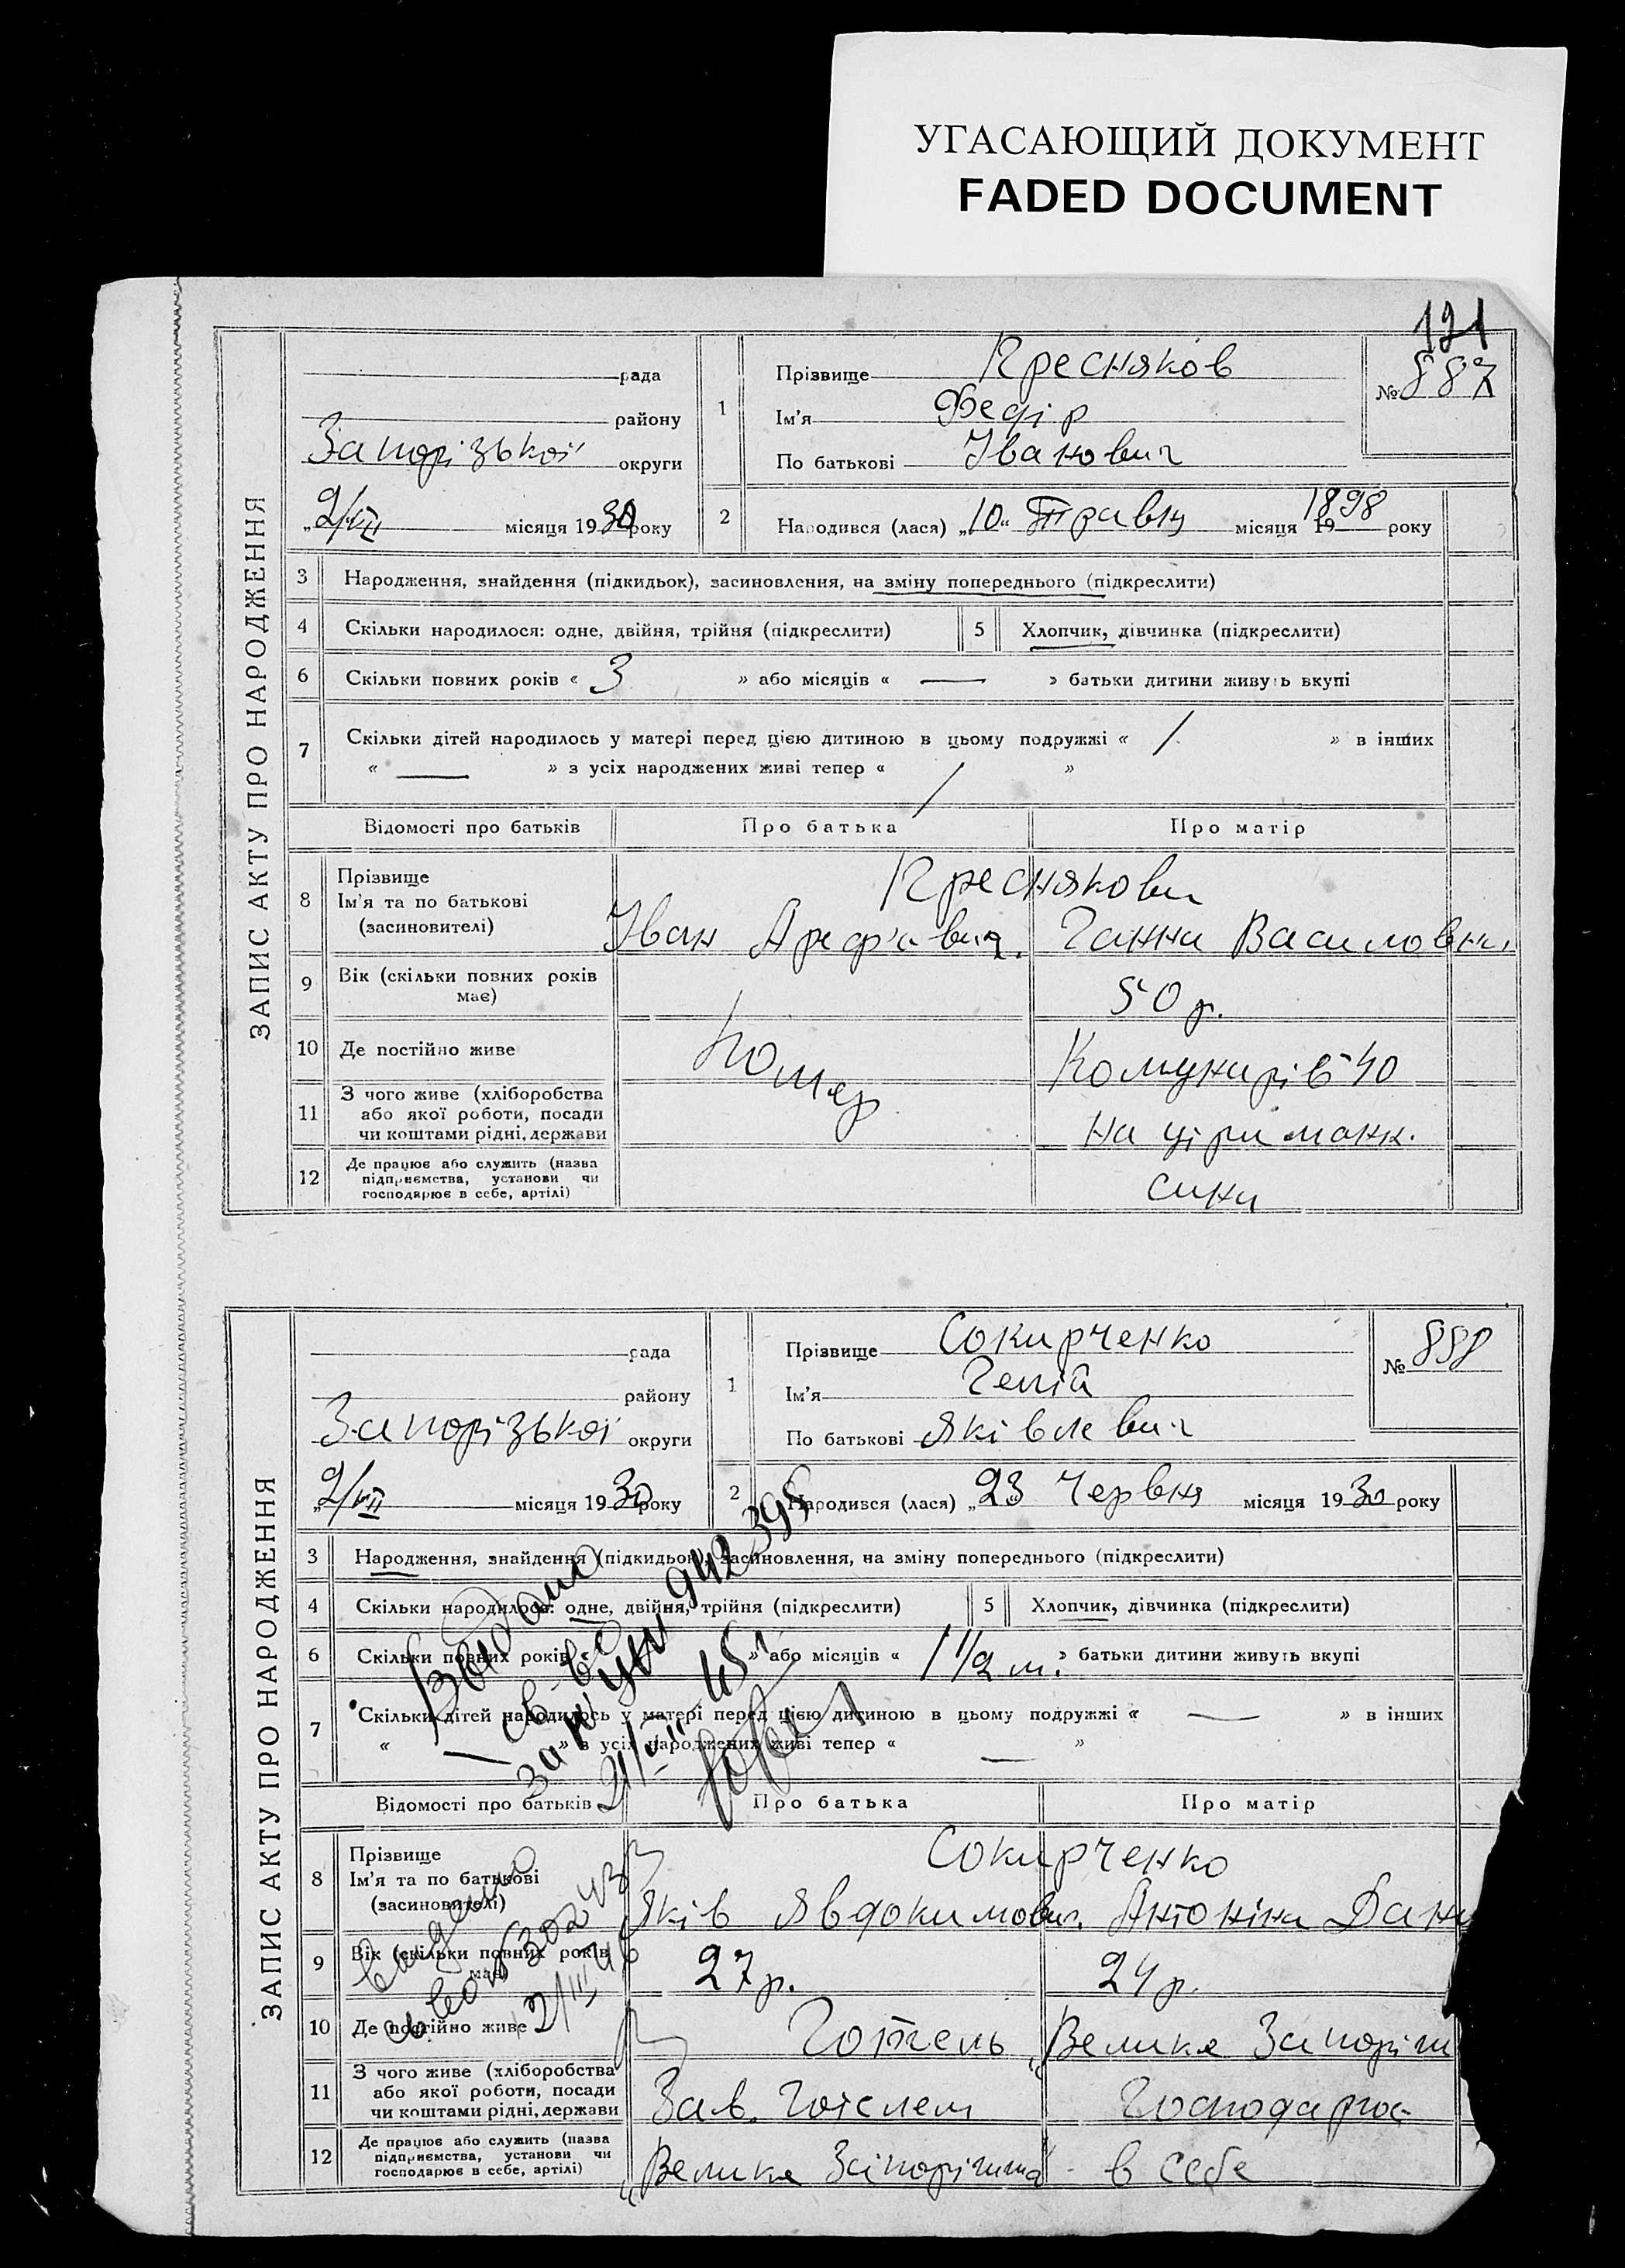 УГАСАЮЩИЙ ДОКУМЕНТ
FADED DOCUMENT
121
ЗАПИС АКТУ ПРО НАРОДЖЕННЯ
рада
району
Запорізької округи
„2/VII місяця 1930 року
1
Прізвище Пресняков
Ім'я Федір
По батькові Іванович
№ 887
2
Народився (лася) „10“ Травня місяця 19 1898 року
3 Народження, знайдення (підкидьок), засиновлення, на зміну попереднього (підкреслити)
4 Скільки народилося: одне, двійня, трійня (підкреслити)
5 Хлопчик, дівчинка (підкреслити)
6 Скільки повних років « 3 » або місяців « — » батьки дитини живуть вкупі
7 Скільки дітей народилось у матері перед цією дитиною в цьому подружжі « / » в інших
« — » з усіх народжених живі тепер « / »
Відомості про батьків Про батька Про матір
8 Прізвище
Ім'я та по батькові
(засиновителі)
Преснякови
Іван Ганна Василовна
9 Вік (скільки повних років має)
50 р.
10 Де постійно живе
Помер
Комунарів 40
11 З чого живе (хліборобства
або якої роботи, посади
чи коштами рідні, держави
на
12 Де працює або служить (назва
підприємства, установи чи
господарює в себе, артілі)
сина
ЗАПИС АКТУ ПРО НАРОДЖЕННЯ
рада
району
Запорізької округи
„2/VII місяця 1930 року
1
Прізвище Сокирченко
Ім'я Гелій
По батькові Яківлевич
№ 888
2
Народився (лася) „23 Червня місяця 1930 року
3 Народження, знайдення (підкидьок), засиновлення, на зміну попереднього (підкреслити)
4 Скільки народилося: одне, двійня, трійня (підкреслити)
5 Хлопчик, дівчинка (підкреслити)
6 Скільки повних років « » або місяців « 1 1/2 м. » батьки дитини живуть вкупі
7 Скільки дітей народилось у матері перед цією дитиною в цьому подружжі « — » в інших
« — » з усіх народжених живі тепер « — »
Відомості про батьків Про батька Про матір
Выдано
св-во
за №
942398
8 Прізвище
Ім'я та по батькові
(засиновителі)
Сокирченко
Яків Явдокимович. Антоніна Дани
9 Вік (скільки повних років має)
27 р. 24 р.
10 Де постійно живе
Готель „Велике Запоріжж
11 З чого живе (хліборобства
або якої роботи, посади
чи коштами рідні, держави
Зав. Готелем Господарює
12 Де працює або служить (назва
підприємства, установи чи
господарює в себе, артілі)
„Велике Запоріжжя“ - в себе